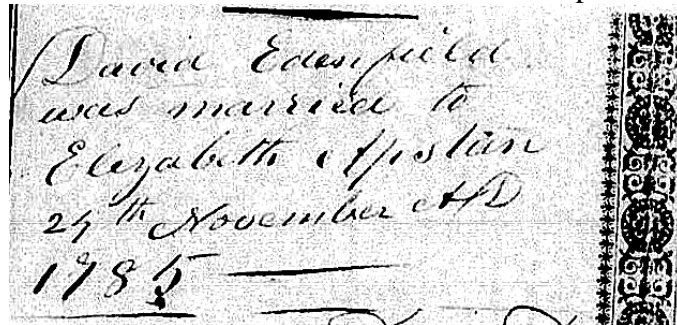 David Edenfield
was married to
Elizabeth Apstan
24th November AD
1785